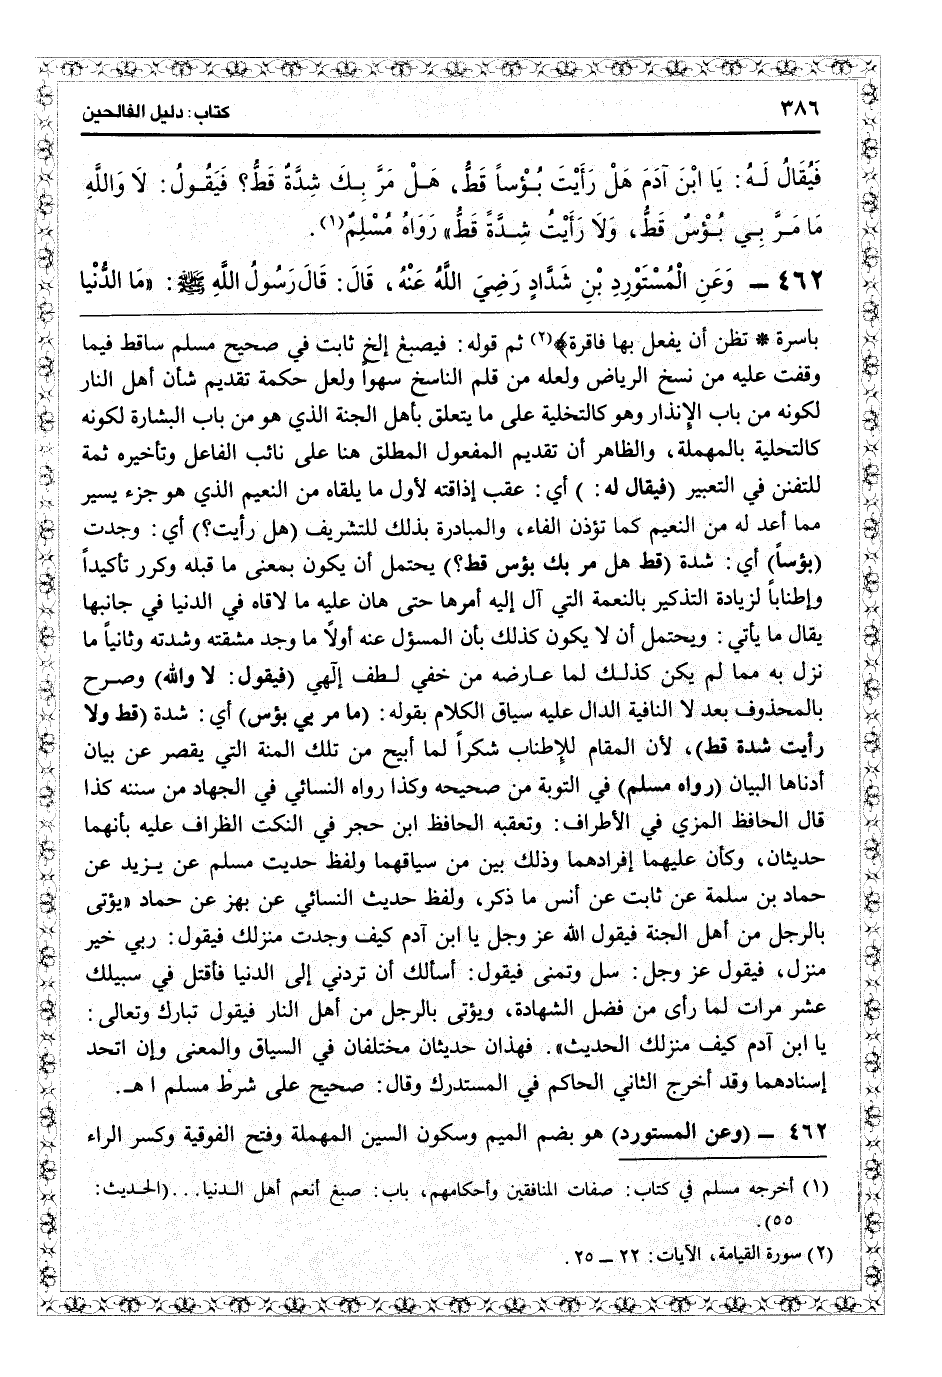 ٣٨٦ كتاب: دليل الفالحين
فَيُقَالُ لَهُ: يَا ابْنَ آدَمَ هَلْ رَأَيْتَ بُؤْساً قَطُّ، هَلْ مَرَّ بِكَ شِدَّةٌ قَطُّ؟ فَيَقُولُ: لَا وَاللَّهِ
مَا مَرَّ بِي بُؤْسٌ قَطُّ، وَلَا رَأَيْتُ شِدَّةً قَطُّ» رَوَاهُ مُسْلِمٌ(١).
٤٦٢ – وَعَنِ الْمُسْتَوْرِدِ بْنِ شَدَّادٍ رَضِيَ اللَّهُ عَنْهُ، قَالَ: قَالَ رَسُولُ اللَّهِ ﷺ: «مَا الدُّنْيَا
باسرة * تظن أن يفعل بها فاقرة﴾(٢) ثم قوله: فيصبغ إلخ ثابت في صحيح مسلم ساقط فيما
وقفت عليه من نسخ الرياض ولعله من قلم الناسخ سهواً ولعل حكمة تقديم شأن أهل النار
لكونه من باب الإنذار وهو كالتخلية على ما يتعلق بأهل الجنة الذي هو من باب البشارة لكونه
كالتحلية بالمهملة، والظاهر أن تقديم المفعول المطلق هنا على نائب الفاعل وتأخيره ثمة
للتفنن في التعبير (فيقال له: ) أي: عقب إذاقته لأول ما يلقاه من النعيم الذي هو جزء يسير
مما أعد له من النعيم كما تؤذن الفاء، والمبادرة بذلك للتشريف (هل رأيت؟) أي: وجدت
(بؤساً) أي: شدة (قط هل مر بك بؤس قط؟) يحتمل أن يكون بمعنى ما قبله وكرر تأكيداً
وإطناباً لزيادة التذكير بالنعمة التي آل إليه أمرها حتى هان عليه ما لاقاه في الدنيا في جانبها
يقال ما يأتي: ويحتمل أن لا يكون كذلك بأن المسؤل عنه أولاً ما وجد مشقته وشدته وثانياً ما
نزل به مما لم يكن كذلك لما عارضه من خفي لطف إلهي (فيقول: لا والله) وصرح
بالمحذوف بعد لا النافية الدال عليه سياق الكلام بقوله: (ما مر بي بؤس) أي: شدة (قط ولا
رأيت شدة قط)، لأن المقام للإطناب شكراً لما أبيح من تلك المنة التي يقصر عن بيان
أدناها البيان (رواه مسلم) في التوبة من صحيحه وكذا رواه النسائي في الجهاد من سننه كذا
قال الحافظ المزي في الأطراف: وتعقبه الحافظ ابن حجر في النكت الظراف عليه بأنهما
حديثان، وكأن عليهما إفرادهما وذلك بين من سياقهما ولفظ حديث مسلم عن يزيد عن
حماد بن سلمة عن ثابت عن أنس ما ذكر، ولفظ حديث النسائي عن بهز عن حماد «يؤتى
بالرجل من أهل الجنة فيقول الله عز وجل يا ابن آدم كيف وجدت منزلك فيقول: ربي خير
منزل، فيقول عز وجل: سل وتمنى فيقول: أسألك أن تردني إلى الدنيا فأقتل في سبيلك
عشر مرات لما رأى من فضل الشهادة، ويؤتى بالرجل من أهل النار فيقول تبارك وتعالى:
يا ابن آدم كيف منزلك الحديث». فهذان حديثان مختلفان في السياق والمعنى وإن اتحد
إسنادهما وقد أخرج الثاني الحاكم في المستدرك وقال: صحيح على شرط مسلم ا هـ.
٤٦٢ – (وعن المستورد) هو بضم الميم وسكون السين المهملة وفتح الفوقية وكسر الراء
(١) أخرجه مسلم في كتاب: صفات المنافقين وأحكامهم، باب: صبغ أنعم أهل الدنيا... (الحديث:
٥٥).
(٢) سورة القيامة، الآيات: ٢٢ – ٢٥.